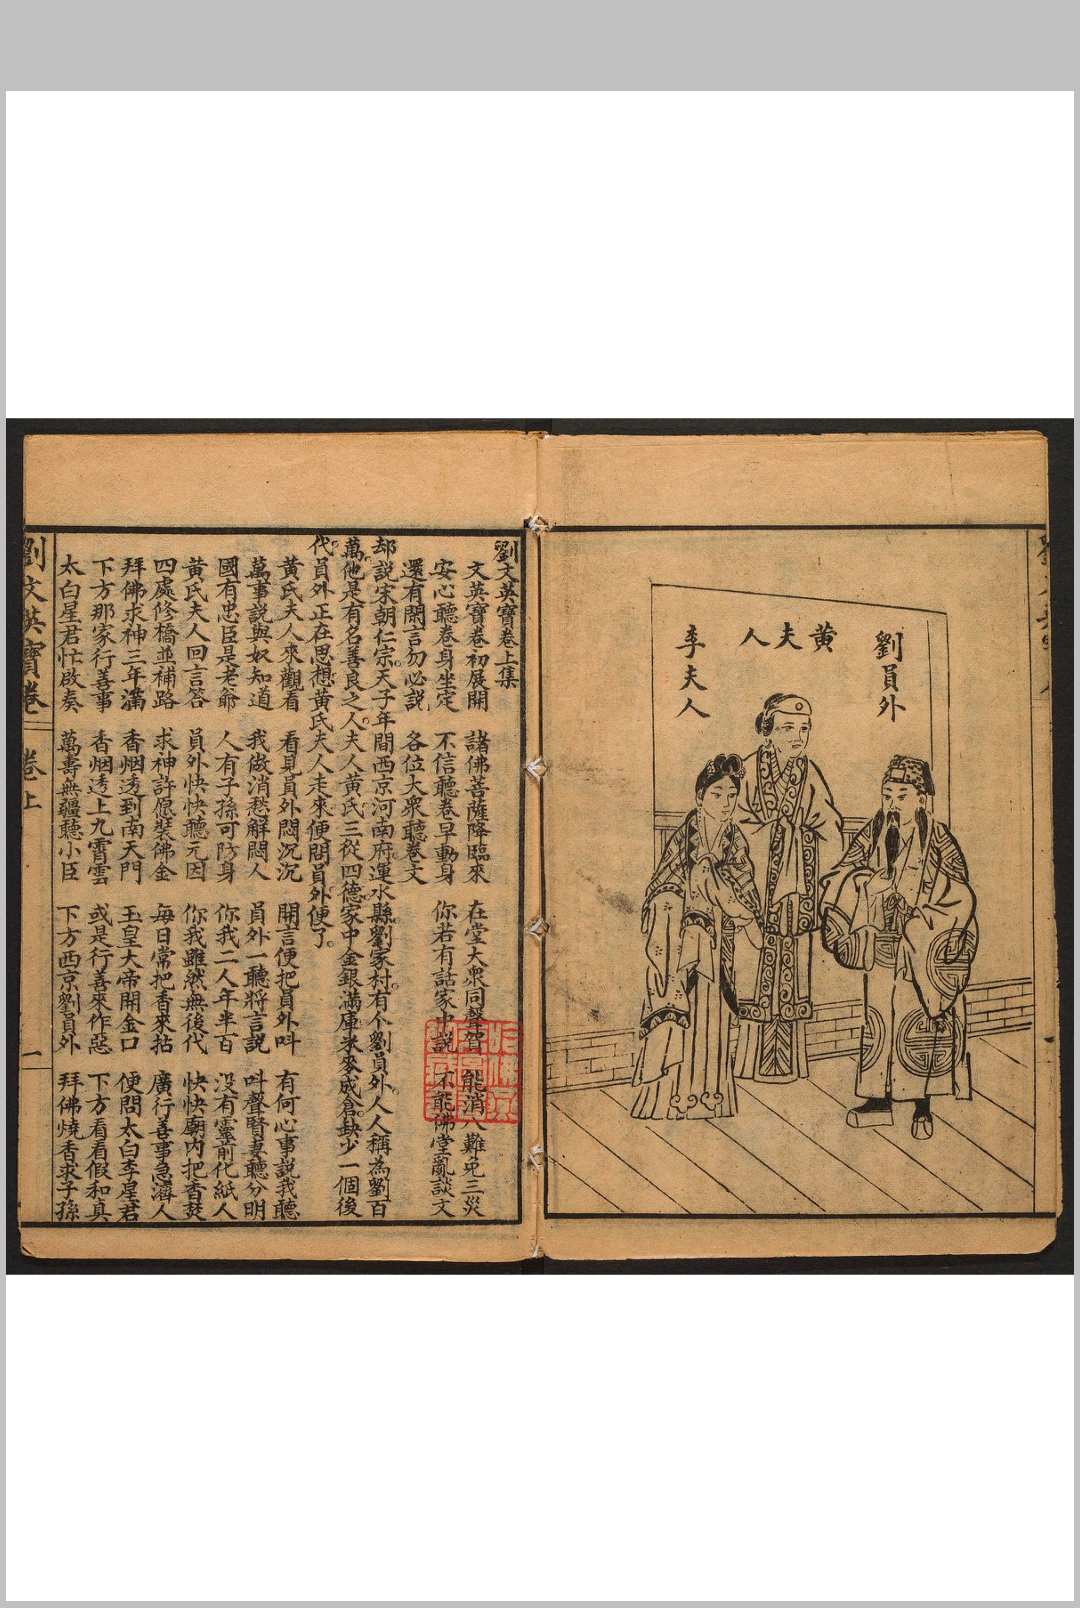 劉員外
黄夫人
李夫人
劉文英寶卷上集
文英寶卷初展開 諸佛菩薩降臨來 在堂大衆同聲賀 能消八難免三災
安心聽卷身坐定 不信聽卷早動身 你若有話家中説 不能佛堂亂談文
還有閑言勿必説 各位大衆聽卷文
却説宋朝仁宗天子年間西京河南府運水縣劉家村有个劉員外人人稱為劉百
萬他是有名善良之人夫人黄氏三從四德家中金銀滿庫米麥成倉缺少一個後
代員外正在思想黄氏夫人走來便問員外便了
黄氏夫人來觀看 看見員外悶沉沉 開言便把員外呌 有何心事説我聽
萬事説與奴知道 我做消愁解悶人 員外一聽將言説 呌聲賢妻聽分明
國有忠臣是老爺 人有子孫可防身 你我二人年半百 没有靈前化紙人
黄氏夫人回言答 員外快快聽元因 你我雖然無後代 快快廟内把香焚
四處修橋並補路 求神許愿裝佛金 每日常把香來拈 廣行善事急濟人
拜佛求神三年滿 香烟透到南天門 玉皇大帝開金口 便問太白李星君
下方那家行善事 香烟透上九霄雲 或是行善來作惡 下方看看假和真
太白星君忙啟奏 萬壽無疆聽小臣 下方西京劉員外 拜佛燒香求子孫
劉文英寶卷 卷上 一